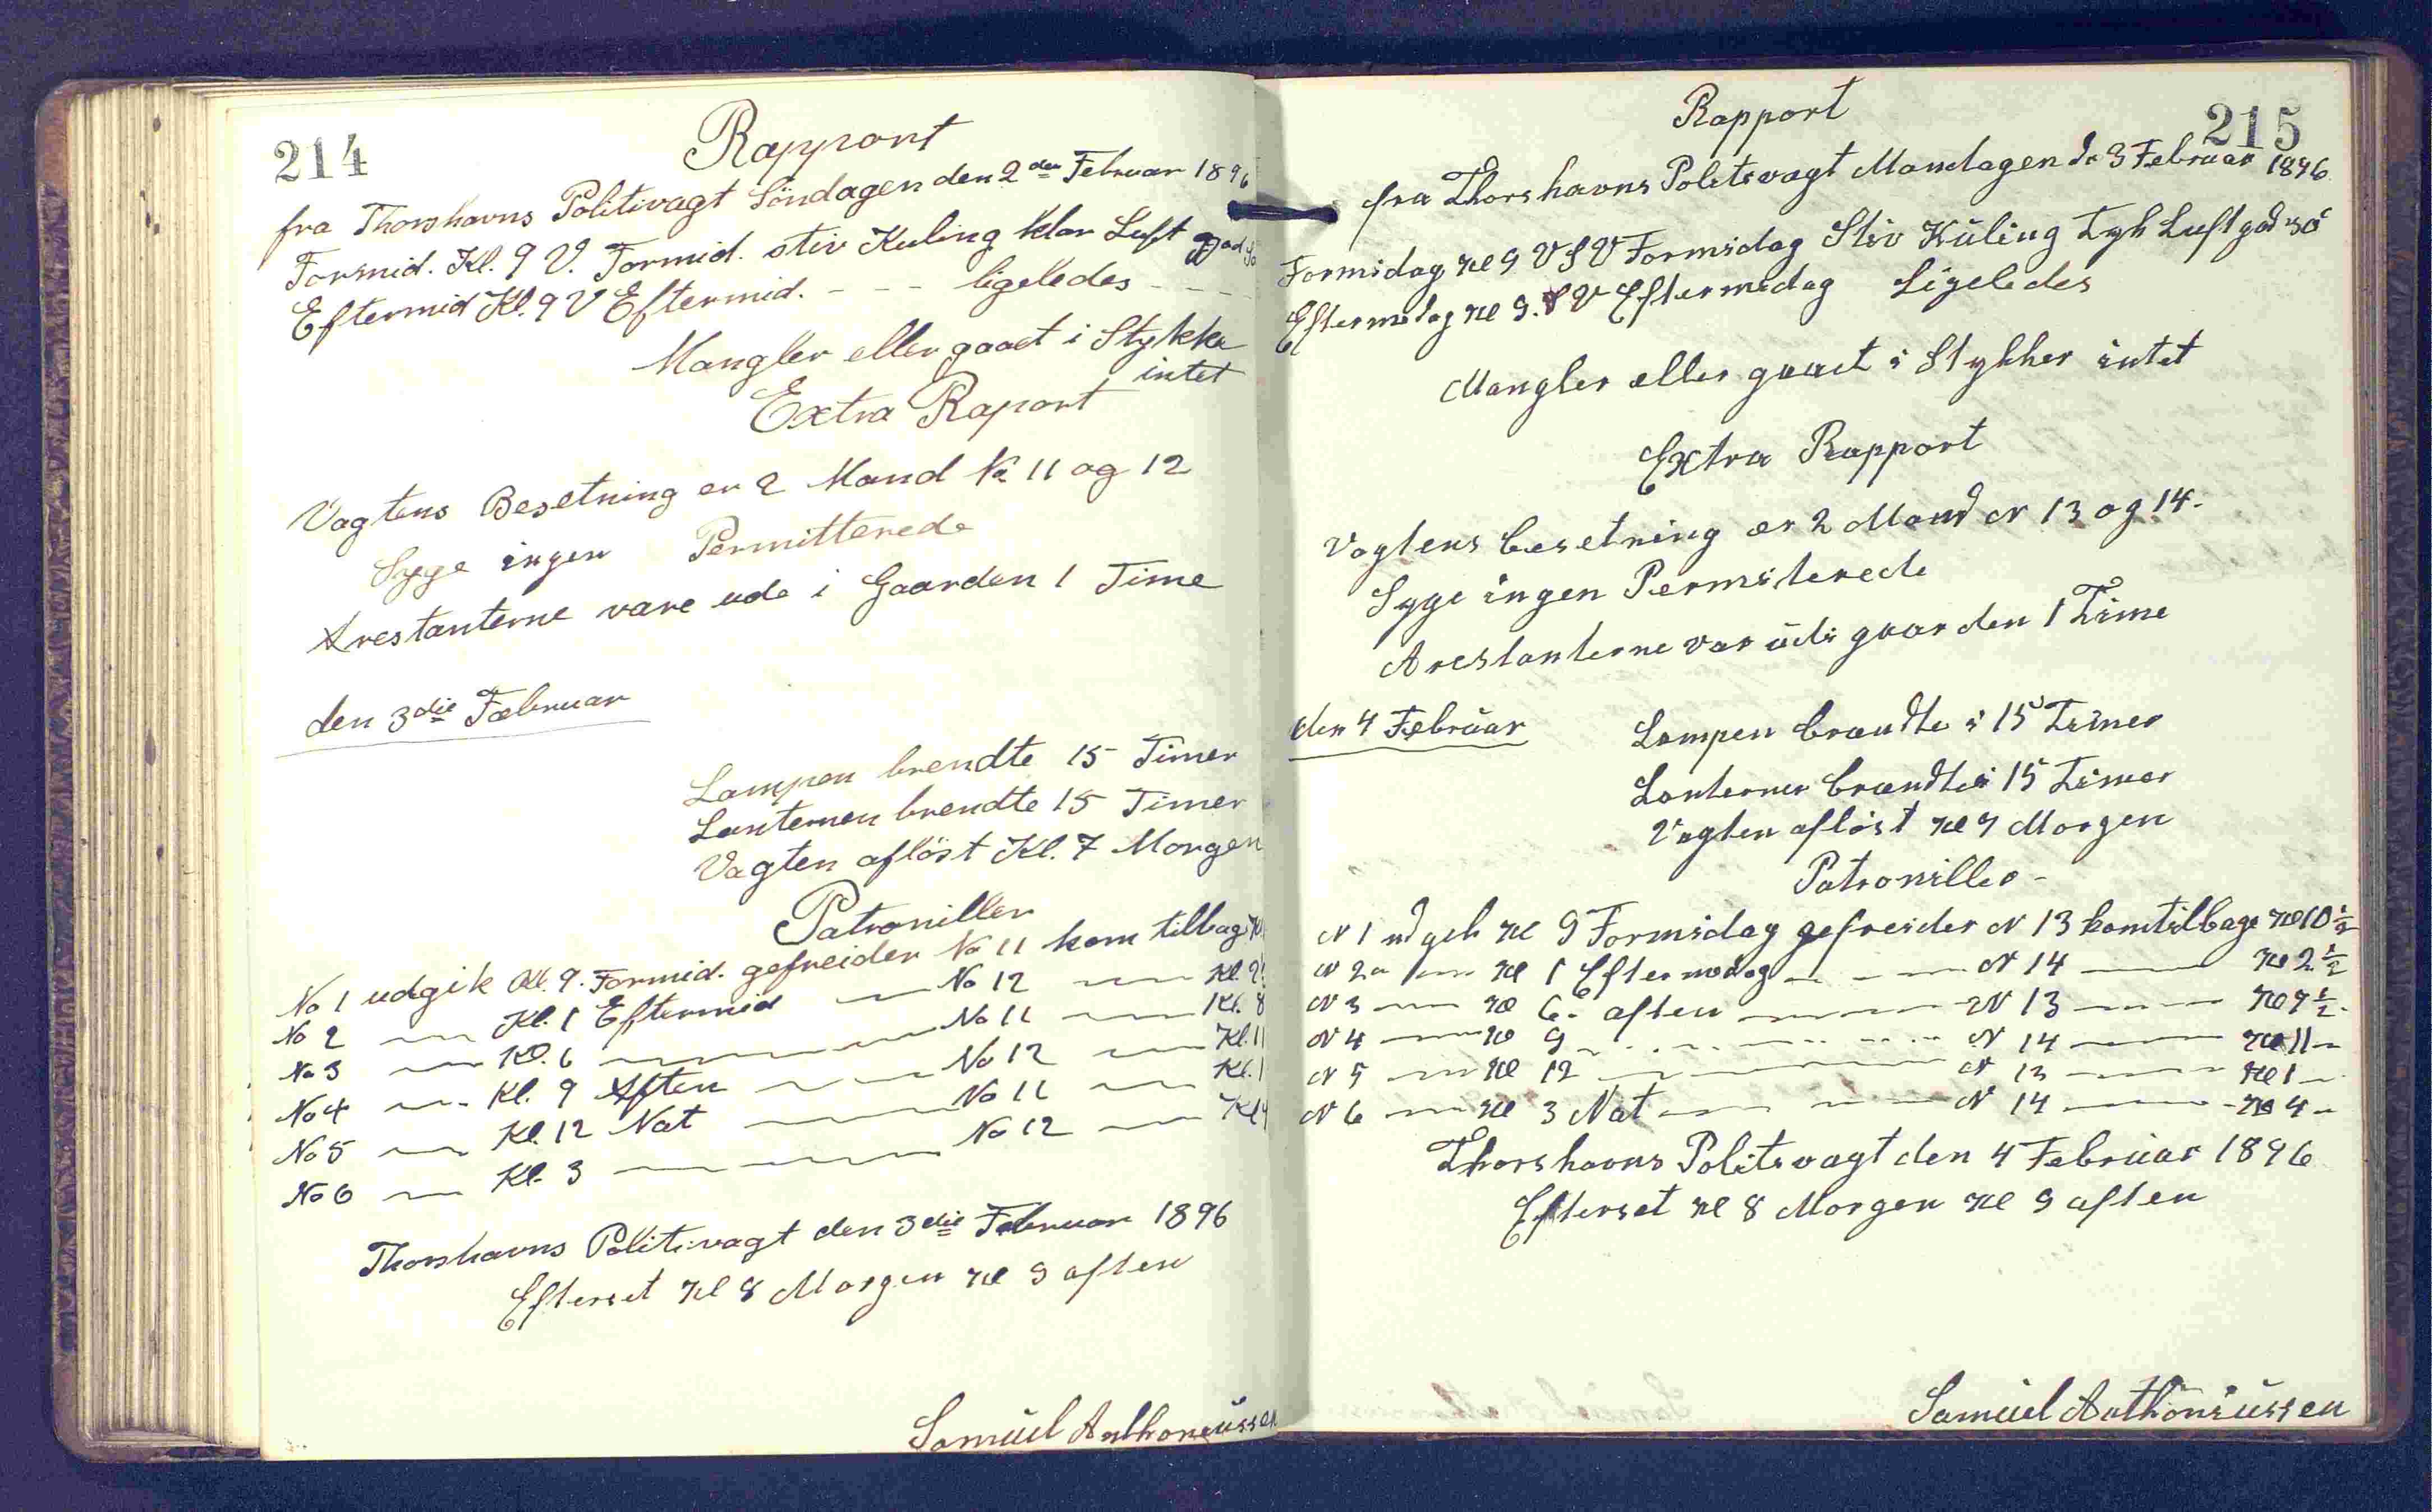 214
Rapport
fra Thorshavns Politivagt Söndagen den 2den Februar 1896
Formid. Kl. 9 V. Formid. stiv Kuling klar Luft
Eftermid Kl. 9 V Eftermid. - - - ligeledes - - -
Mangler eller gaaet i Stykke
intet
Extra Raport
Vagtens Besetning er 2 Mand No 11 og 12
Syge ingen Permitterede
Arestanterne vare ude i Gaarden 1 Time
den 3die Februar
Lampen brendte 15 Timer
Lanternen brendte 15 Timer
Vagten aflöst Kl. 7 Morgen
Patroniller
No 1 udgik Kl. 9. Formid. gefreider No 11 kom tilbage
No 2 — Kl. 1 Eftermid — No 12 — Kl. 2
No 3 — Kl. 6 — No 11 — Kl. 8
No 4 — Kl. 9 Aften — No 12 — Kl. 11
No 5 — Kl. 12 Nat — No 11 — Kl. 1
No 6 — Kl. 3 — No 12 — Kl 4
Thorshavns Politivagt den 3die Februar 1896
Efterset Kl 8 Morgen Kl 9 aften
Samüel Anthoniüssen
215
Rapport
fra Thorshavns Politivagt Mandagen d. 3 Februar 1896
Formidag Kl 9 V S V Formidag Stiv Küling Tyk Luft
Eftermidag Kl 9. S V Eftermidag Ligeledes
Mangler eller gaaet i Stykker intet
Extra Rapport
Vagtens besetning er 2 Mand N 13 og 14.
Syge ingen Permiterede
Arestanterne var üdi gaarden 1 Time
den 4 Februar
Lampen brændte i 15 Timer
Lanterner brændte i 15 Timer
Vagten afløst Kl 7 Morgen
Patroniller -
N 1 udgik Kl 9 Formidag gefreider N 13 kom tilbage Kl 10 1/2
N 2 — Kl 1 Eftermidag — N 14 — Kl 2 1/2
N 3 — Kl 6. aften — N 13 — Kl 7 1/2.
N 4 — Kl 9 — N 14 — Kl 11 -
N 5 — Kl 12 — N 13 — Kl 1 -
N 6 — Kl 3 Nat — N 14 — Kl 4 -
Thorshavns Politivagt den 4 Februar 1896
Efterset Kl 8 Morgen Kl 9 aften
Samüel Anthoniüssen